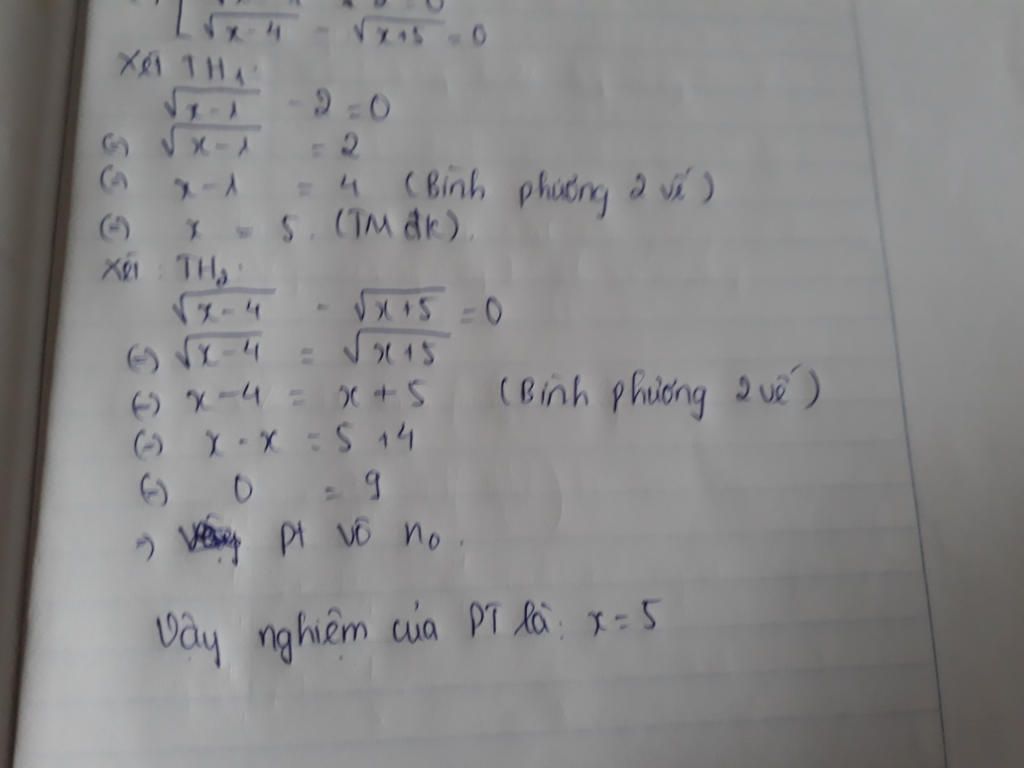 √x-4 - √x+5 = 0
Xét TH1:
√x-1 - 2 = 0
(=) √x-1 = 2
(=) x-1 = 4 (Bình phương 2 vế)
(=) x = 5. (TM đk).
Xét: TH2:
√x-4 - √x+5 = 0
(=) √x-4 = √x+5
(=) x-4 = x+5 (Bình phương 2 vế)
(=) x-x = 5+4
(=) 0 = 9
=) pt vô no.
Vậy nghiệm của PT là: x=5